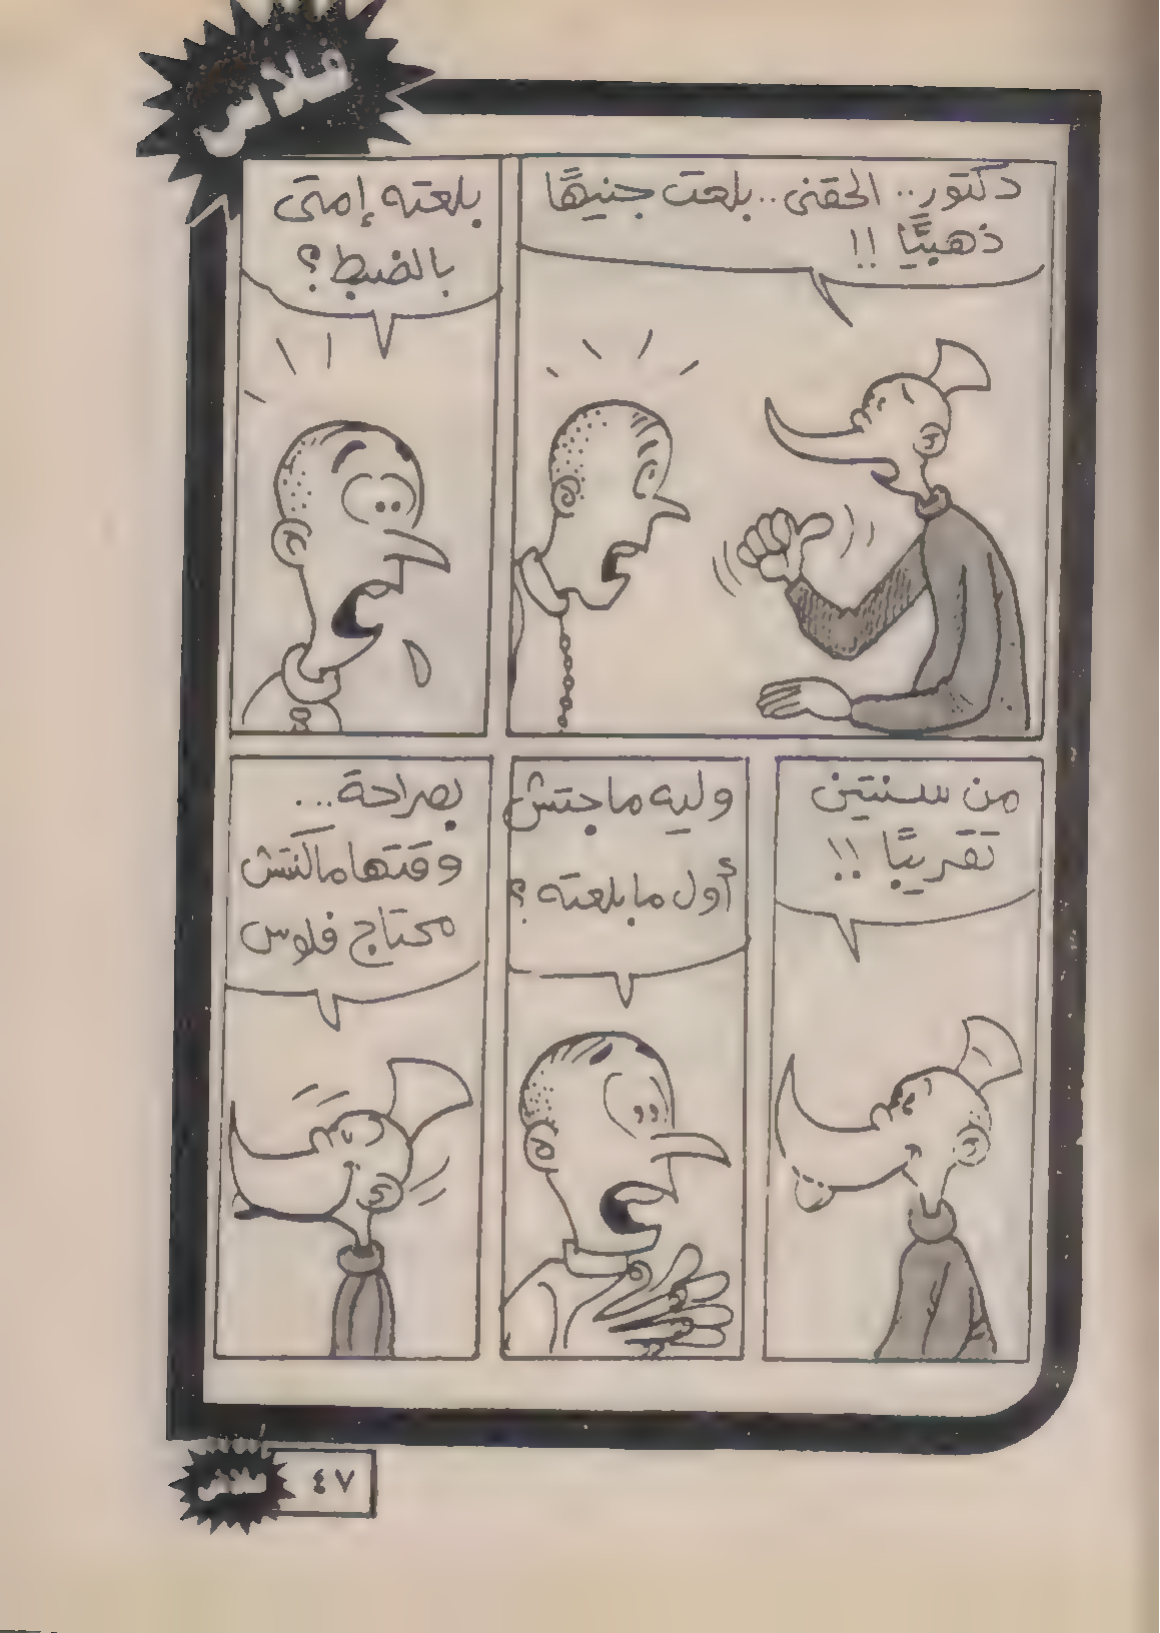 فلاش
دكتور.. الحقنى.. بلعت جنيهًا
ذهبيًّا !!
بلعته إمتى
بالضبط؟
من سنتين
تقريبًا !!
وليه ماجتش
أول ما بلعته؟
بصراحة...
وقتها ماكنتش
محتاج فلوس
فلاش
٤٧